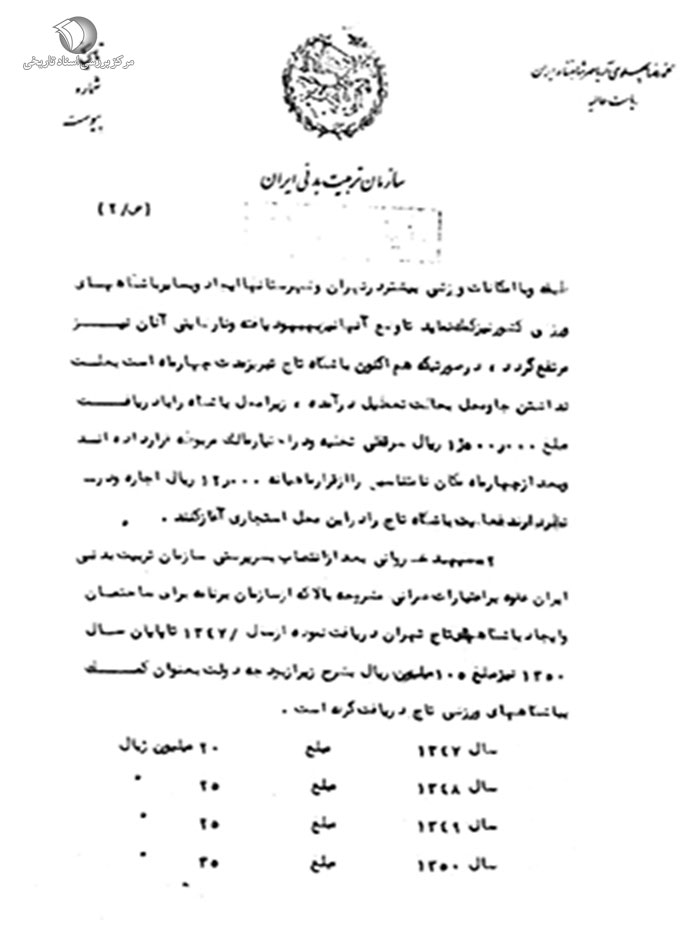 مرکز بررسی اسناد تاریخی
شماره
پیوست
ریاست عالیه
سازمان تربیت بدنی ایران
(ص/۲)
طبقه وبا امکانات ورزشی بیشتر در تهران وشهرستانها ایجاد وبسایر باشگاه های
ورزشی کشور نیز کمک نماید تا وضع آنها نیز بهبود یافته ونارضایتی آنان نیز
مرتفع گردد ، در صورتیکه هم اکنون باشگاه تاج تبریز مدت چهارماه است بعلت
نداشتن جا ومحل بحالت تعطیل درآمده ، زیرا محل باشگاه را با دریافت
مبلغ ریال سرقفلی تخلیه ودر اختیار مالک مربوطه قرار داده اند
وبعد از چهارماه مکان نامتناسبی را از قرار ماهیانه ۱۲۰۰۰ ریال اجاره ودر
نظر دارند فعالیت باشگاه تاج را در این محل استیجاری آغاز کنند .
۲ سپهبد خسروانی بعد از انتصاب بسرپرستی سازمان تربیت بدنی
ایران علاوه بر اعتبارات عمرانی مشروحه بالا که از سازمان برنامه برای ساختمان
وایجاد باشگاههای تاج تهران دریافت نموده از سال ۱۳۴۷/ تا پایان سال
۱۳۵۰ نیز مبلغ ۱۰۵ ملیون ریال بشرح زیر از بودجه دولت بعنوان کمک
بباشگاههای ورزشی تاج دریافت کرده است .
سال ۱۳۴۷ مبلغ ۲۰ ملیون ریال
سال ۱۳۴۸ مبلغ ۲۵ "
سال ۱۳۴۹ مبلغ ۲۵ "
سال ۱۳۵۰ مبلغ ۳۵ "